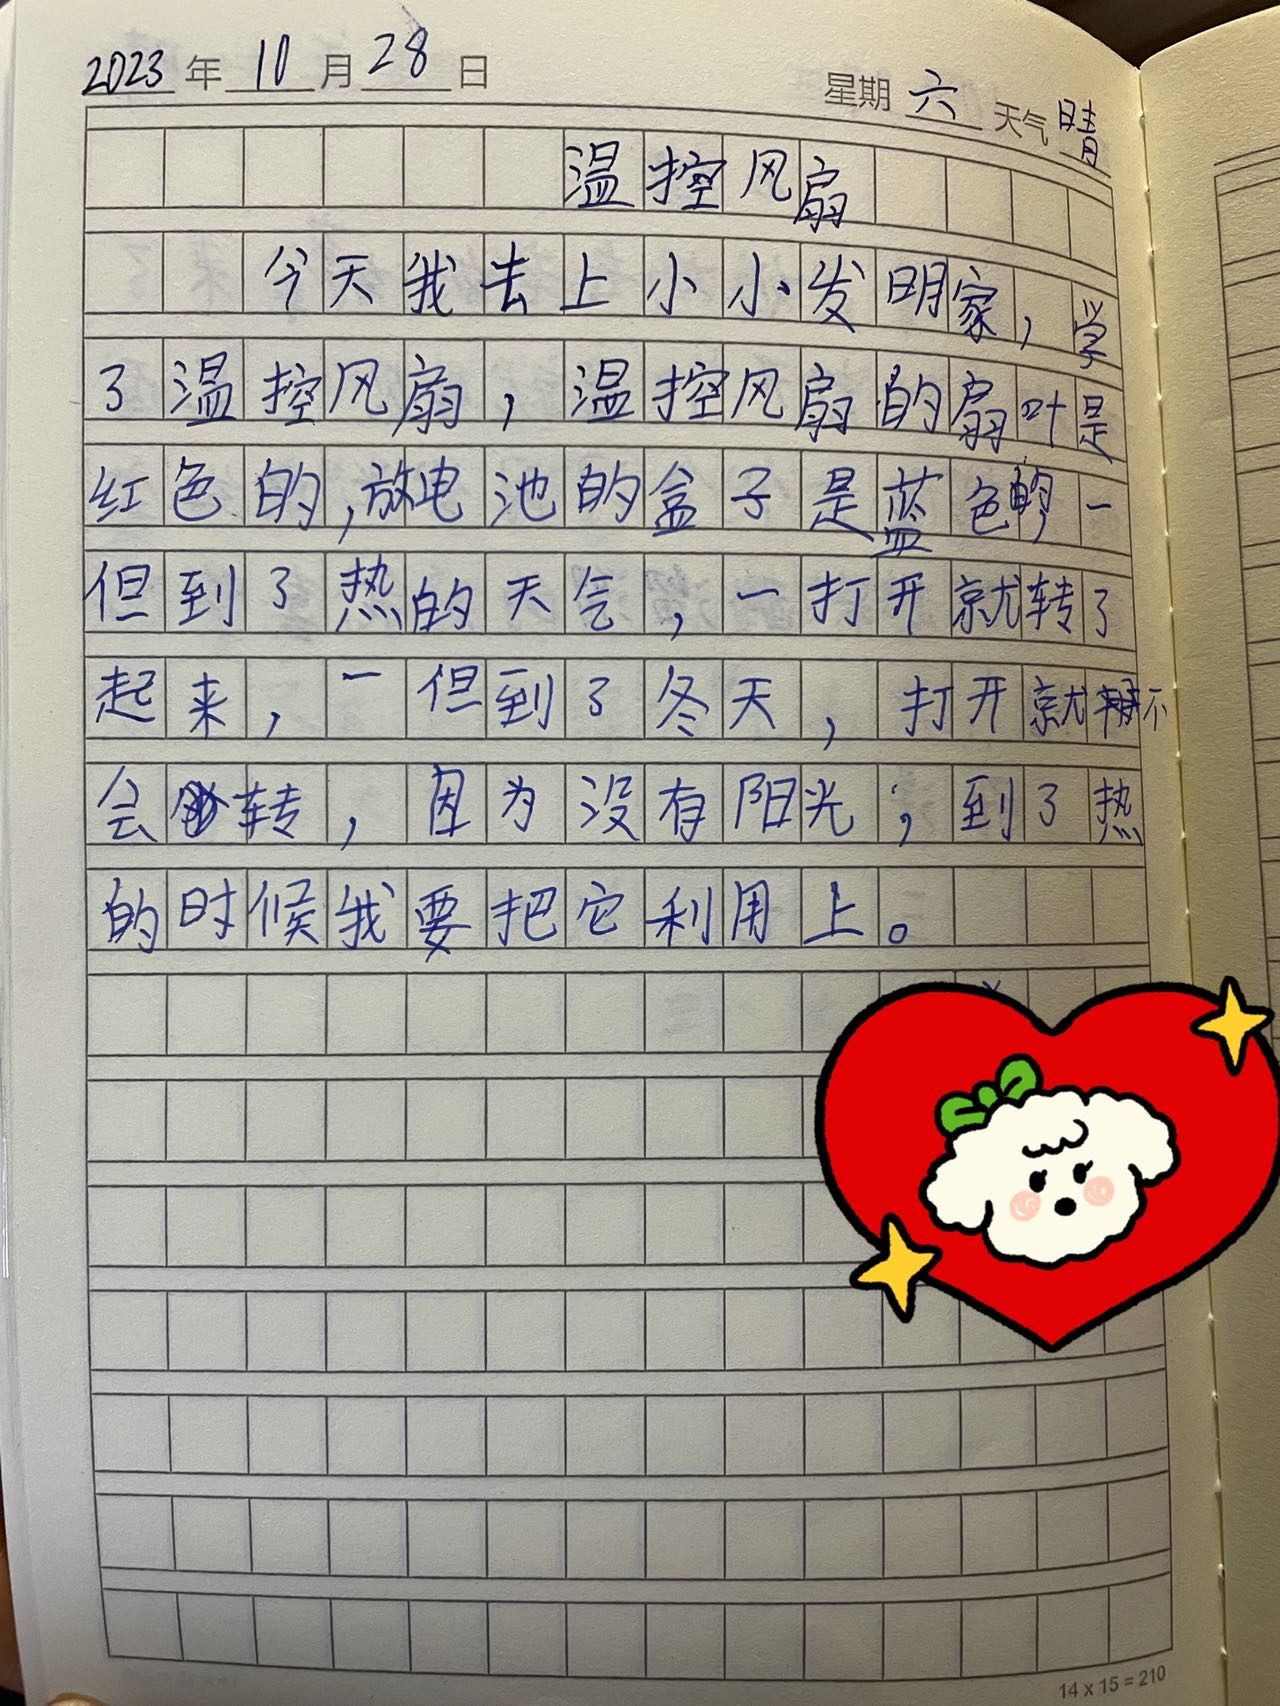 2023年10月28日 星期六 天气晴
温控风扇
今天我去上小小发明家，学
了温控风扇，温控风扇的扇叶是
红色的，放电池的盒子是蓝色的一
但到了热的天气，一打开就转了
起来，一但到了冬天，打开就不
会转，因为没有阳光；到了热
的时候我要把它利用上。
14×15=210